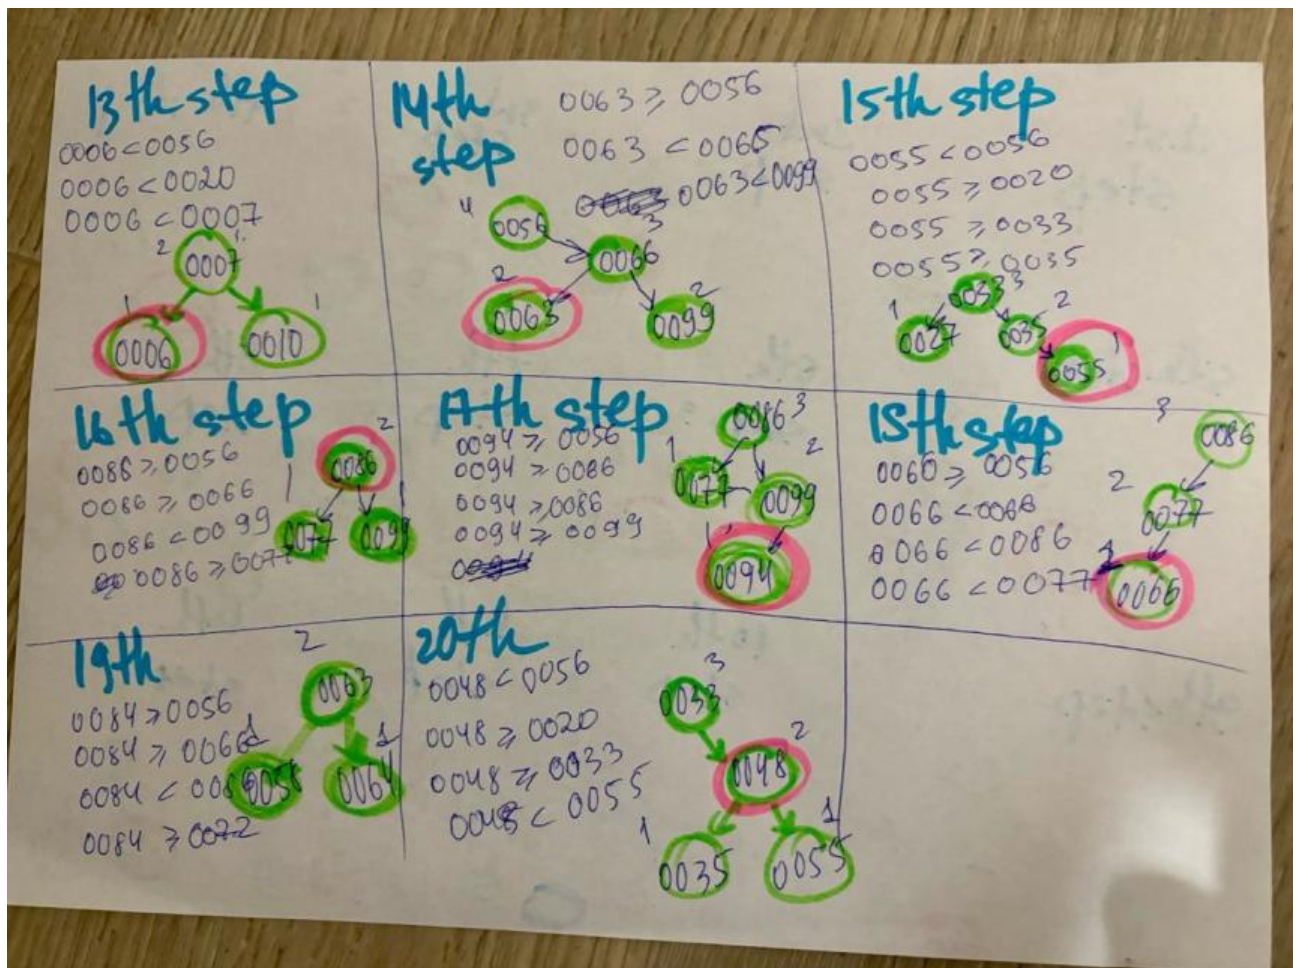 13th step
0006 < 0056
0006 < 0020
0006 < 0007
2
0007
1
0006
1
0010
14th
step
0063 ≥ 0056
0063 < 0066
0063 < 0099
4
0056
3
0066
2
0063
2
0099
15th step
0055 < 0056
0055 ≥ 0020
0055 ≥ 0033
0055 ≥ 0035
0033
3
1
0027
2
0035
1
0055
16th step
0086 ≥ 0056
0086 ≥ 0066
0086 < 0099
0086 ≥ 0077
2
0086
1
0077
0099
17th step
0094 ≥ 0056
0094 ≥ 0086
0094 ≥ 0086
0094 ≥ 0099
0086
3
1
0077
2
0099
1
0094
18th step
0060 ≥ 0056
0066 < 0066
0066 < 0086
0066 < 0077
3
0086
2
0077
0066
19th
0084 ≥ 0056
0084 ≥ 0066
0084 < 008
0084 ≥ 0077
2
0063
1
0058
1
0064
20th
0048 < 0056
0048 ≥ 0020
0048 ≥ 0033
0048 < 0055
3
0033
2
0048
1
0035
1
0055